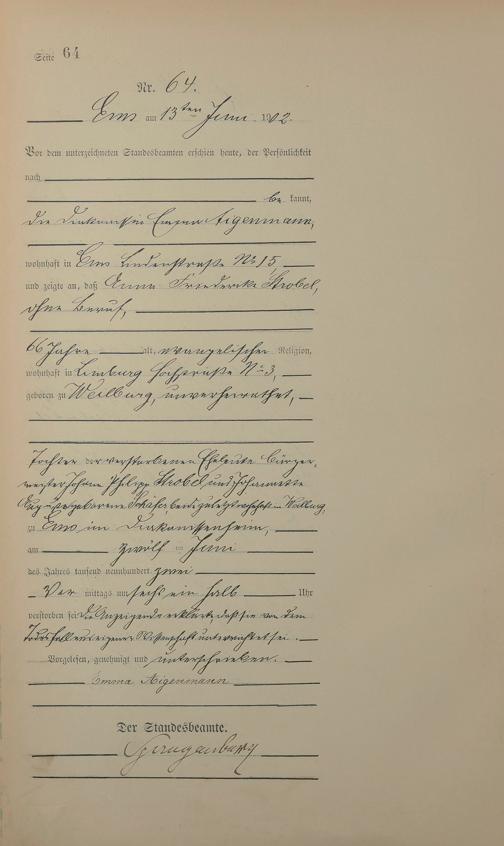 Seite 64
Nr. 64.
Ems am 13ten Juni 1902.
Vor dem unterzeichneten Standesbeamten erschien heute, der Persönlichkeit
nach
be kannt,
die Diakonissin Emma Aigenmann,
wohnhaft in Ems Lindenstraße No 15,
und zeigte an, daß Anna Friederike Strobel,
ohne Beruf,
66 Jahre alt, evangelischer Religion,
wohnhaft in Limburg Hochstraße No 3,
geboren zu Weilburg, unverheirathet,
Tochter der verstorbenen Eheleute Bürger-
meister Johann Philipp Strobel und Johannette
geborene Schäfer beide zuletzt wohnhaft in Weilburg,
zu Ems im Diakonissenheim,
am zwölf ten Juni
des Jahres tausend neunhundert zwei
Vor mittags um sechs ein halb Uhr
verstorben sei. Die Anzeigende erklärte, daß sie von dem
Todesfall aus eigener Wissenschaft unterrichtet sei.
Vorgelesen, genehmigt und unterschrieben.
Emma Aigenmann
Der Standesbeamte.